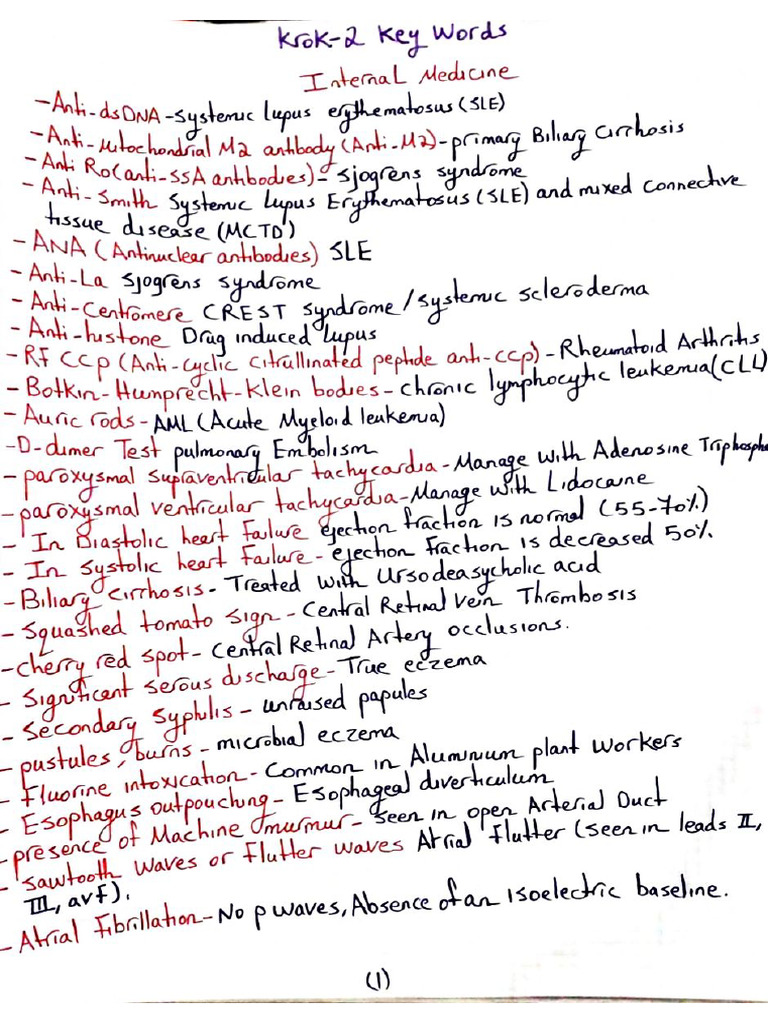 Krok-2 Key Words
Internal Medicine
- Anti-dsDNA - Systemic lupus erythematosus (SLE)
- Anti-mitochondrial M2 antibody (Anti-M2) - primary Biliary Cirrhosis
- Anti Ro (anti-SSA antibodies) - Sjogrens syndrome
- Anti-Smith Systemic Lupus Erythematosus (SLE) and mixed connective
tissue disease (MCTD)
- ANA (Antinuclear antibodies) SLE
- Anti-La Sjogrens syndrome
- Anti-Centromere CREST syndrome / systemic scleroderma
- Anti-histone Drug induced lupus
- RF CCP (Anti-cyclic citrullinated peptide anti-CCP) - Rheumatoid Arthritis
- Botkin-Humprecht-Klein bodies - chronic lymphocytic leukemia (CLL)
- Auric rods - AML (Acute Myeloid leukemia)
- D-dimer Test pulmonary Embolism
- paroxysmal supraventricular tachycardia - Manage with Adenosine Triphosphe
- paroxysmal ventricular tachycardia - Manage with Lidocaine
- In Diastolic heart Failure ejection fraction is normal (55-70%)
- In Systolic heart Failure - ejection Fraction is decreased 50%.
- Biliary cirrhosis - Treated with Ursodeasycholic acid
- Squashed tomato sign - Central Retinal vein Thrombosis
- cherry red spot - Central Retinal Artery occlusions.
- Significant serous discharge - True eczema
- Secondary Syphilis - unraised papules
- pustules, burns - microbial eczema
- Fluorine intoxication - Common in Aluminium plant workers
- Esophagus outpouching - Esophageal diverticulum
- presence of Machine murmur - seen in open Arterial Duct
- Sawtooth waves or flutter waves Atrial flutter (seen in leads II,
III, avf).
- Atrial Fibrillation - No p waves, Absence of an isoelectric baseline.
(1)